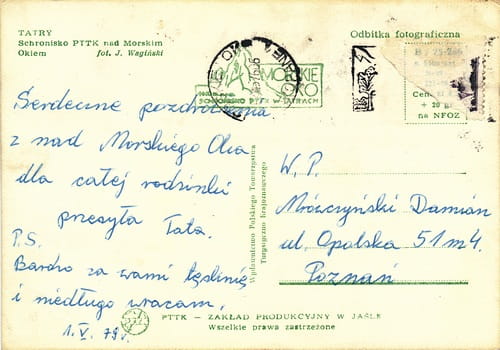 TATRY
Schronisko PTTK nad Morskim
Okiem fot. J. Wagiński
Odbitka fotograficzna
MORSKIE
OKO
SCHRONISKO PTTK W TATRACH
Cen
+ 20 gr
na NFOZ
Serdeczne pozdrowienia
z nad Morskiego Oka
dla całej rodzinki
przesyła Tata.
P.S.
Bardzo za wami tęsknię
i niedługo wracam.
1. V. 79 r.
Wydawnictwo Polskiego Towarzystwa
Turystyczno Krajoznawczego
W. P.
Mrówczyński Damian
ul. Opolska 51 m 4.
Poznań
PTTK — ZAKŁAD PRODUKCYJNY W JAŚLE
Wszelkie prawa zastrzeżone